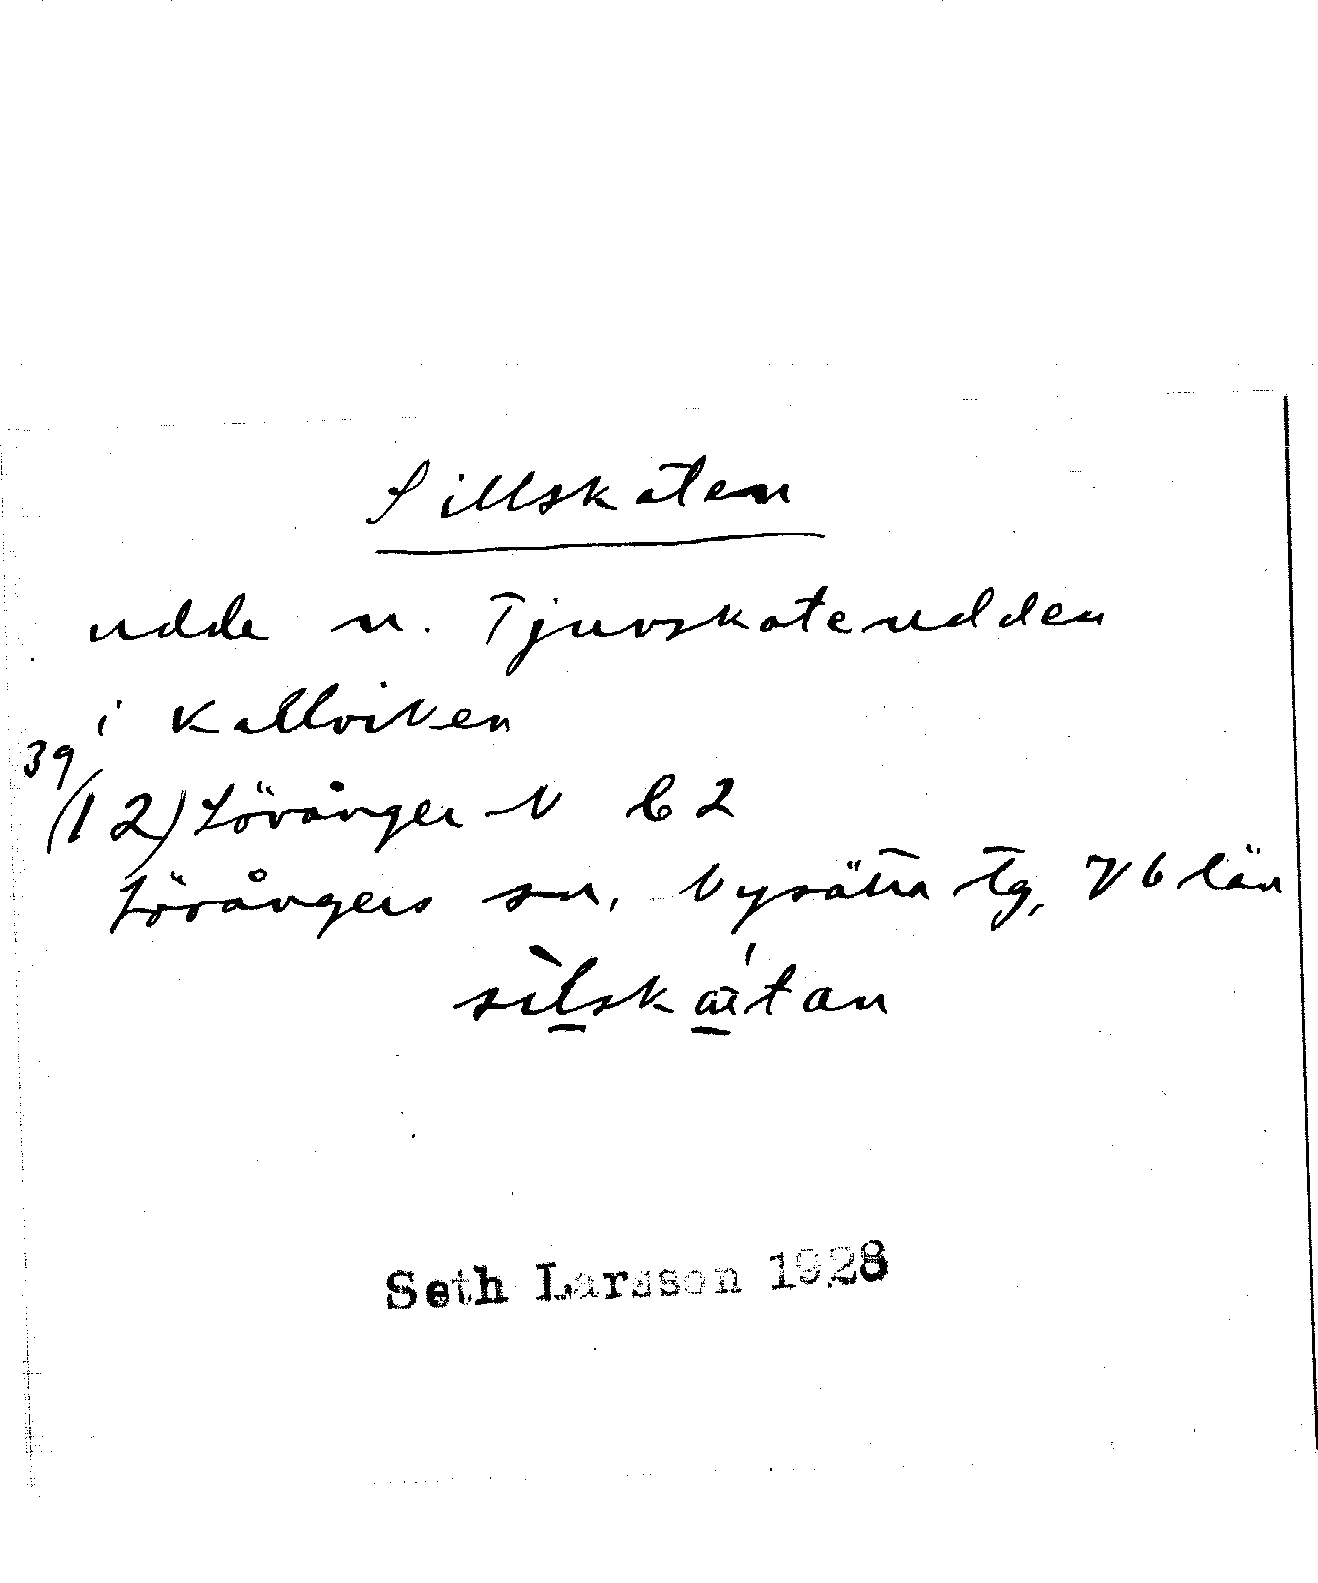 Sillskaten
udde n. Tjuvskateudden
i Kallviken
39
(12) Lövånger N C2
Lövångers sn, Nysätra tg, Vb län
silskatan
Seth Larsson 1928